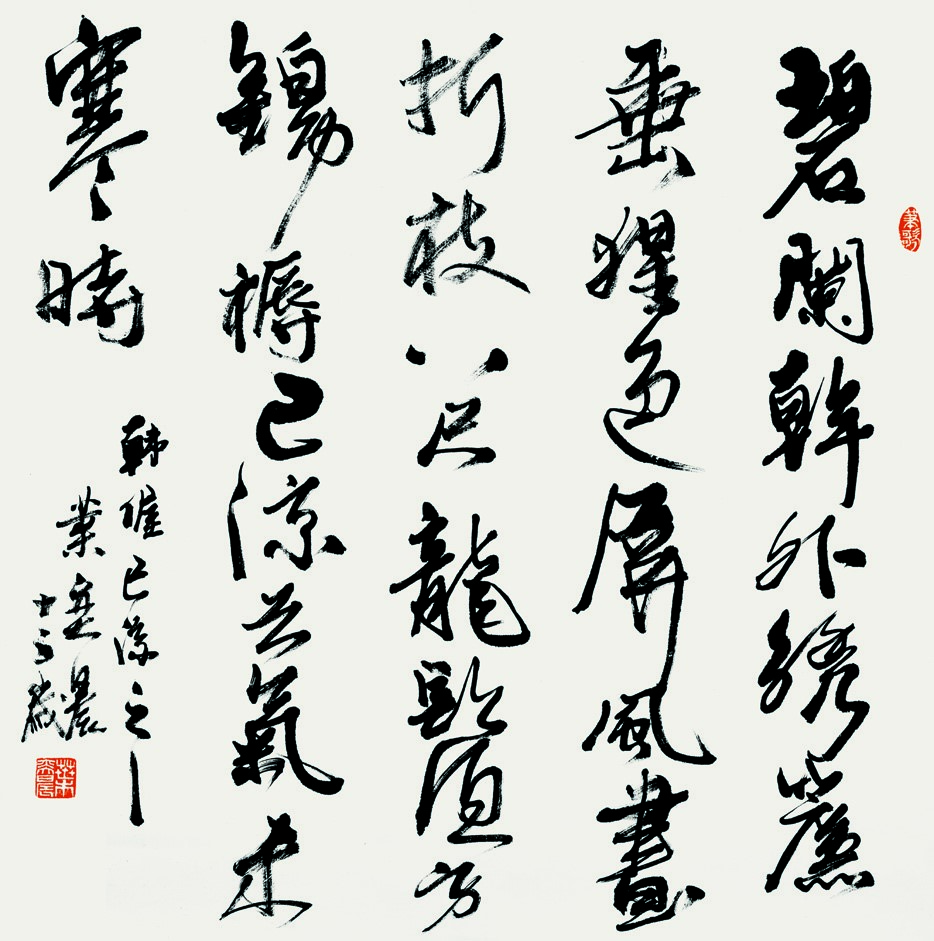 碧闌幹外綉簾
垂猩色屏風畫
折枝八尺龍鬚方
錦褥已涼天氣未
寒時
韓偓已涼之一
葉奕晨